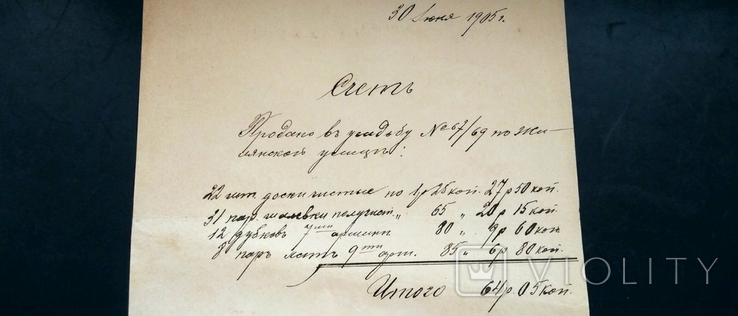 30 Июня 1905 г.
Счетъ
Продано въ усадьбу № 67/69 по Жи-
лянской улицѣ:
22 шт. доски чистые по 1 р 25 коп. 27 р 50 коп.
31 пар. шалевки получист. „ 65 „ 20 р 15 коп.
12 дубков 7ми аршин 80 „ 9 р 60 коп.
8 паръ лат 9ти арш. 85 „ 6 р 80 коп.
Итого 64 р. 05 коп.
VIOLITY